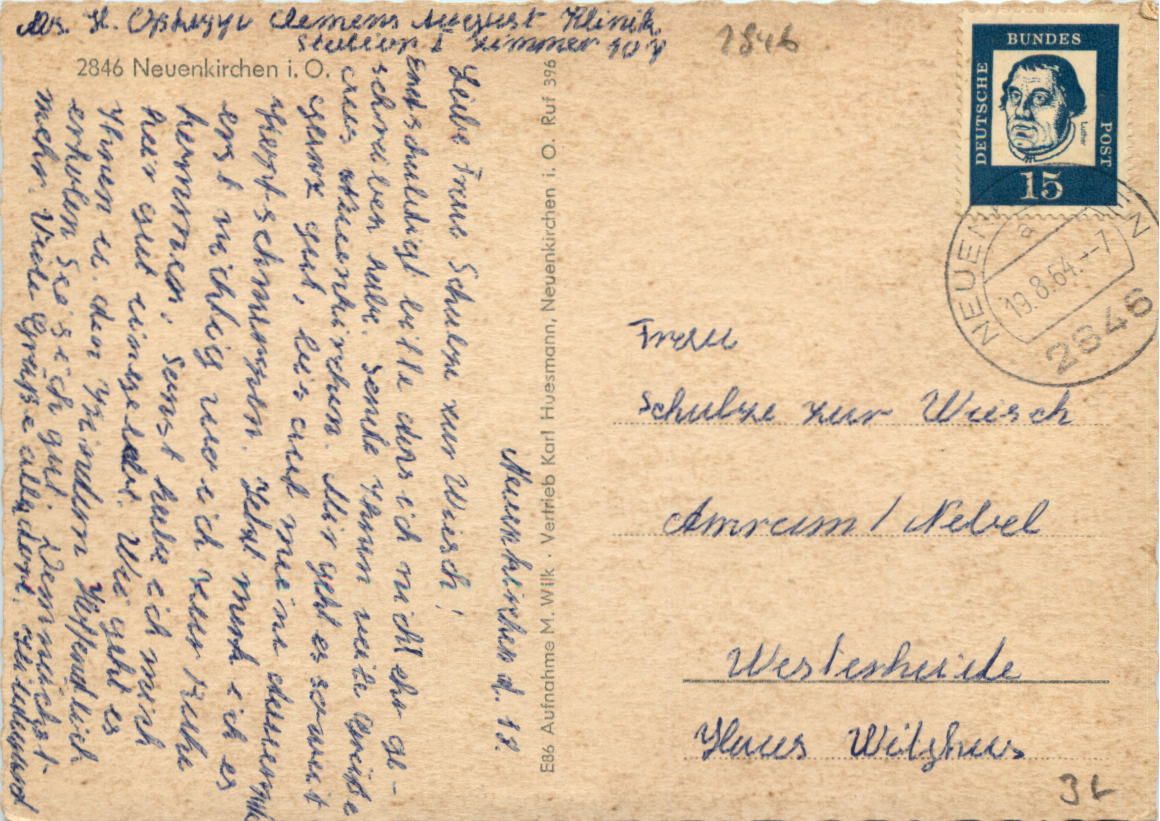 Abs. H. Clemens August Klinik
Station 1 Zimmer 107
2846
2846 Neuenkirchen i. O.
Neuenkirchen d. 18.
Liebe Frau Schulze zur Wiesch!
Entschuldigt bitte das ich nicht ehr ge-
schrieben habe. Sende Ihnen viele Grüße
aus Neuenkirchen. Mir geht es soweit
ganz gut, bis auf meine dauernde
Kopfschmerzen. Jetzt merk ich es
erst richtig wo ich zur Ruhe
kommen. Sonst habe ich mich
hier gut eingelebt. Wie geht es
Ihnen u. den Kindern Hoffentlich
erholen Sie sich gut. Demnächst
mehr. Viele Grüße allerseits.
E86 Aufnahme M. Wilk · Vertrieb Karl Huesmann, Neuenkirchen i. O. Ruf 396
DEUTSCHE
BUNDES
POST
Luther
15
NEUENKIRCHEN
a
19.8.64.--7
2846
Frau
Schulze zur Wiesch
Amrum / Nebel
Westerheide
Haus Witzhus
3L